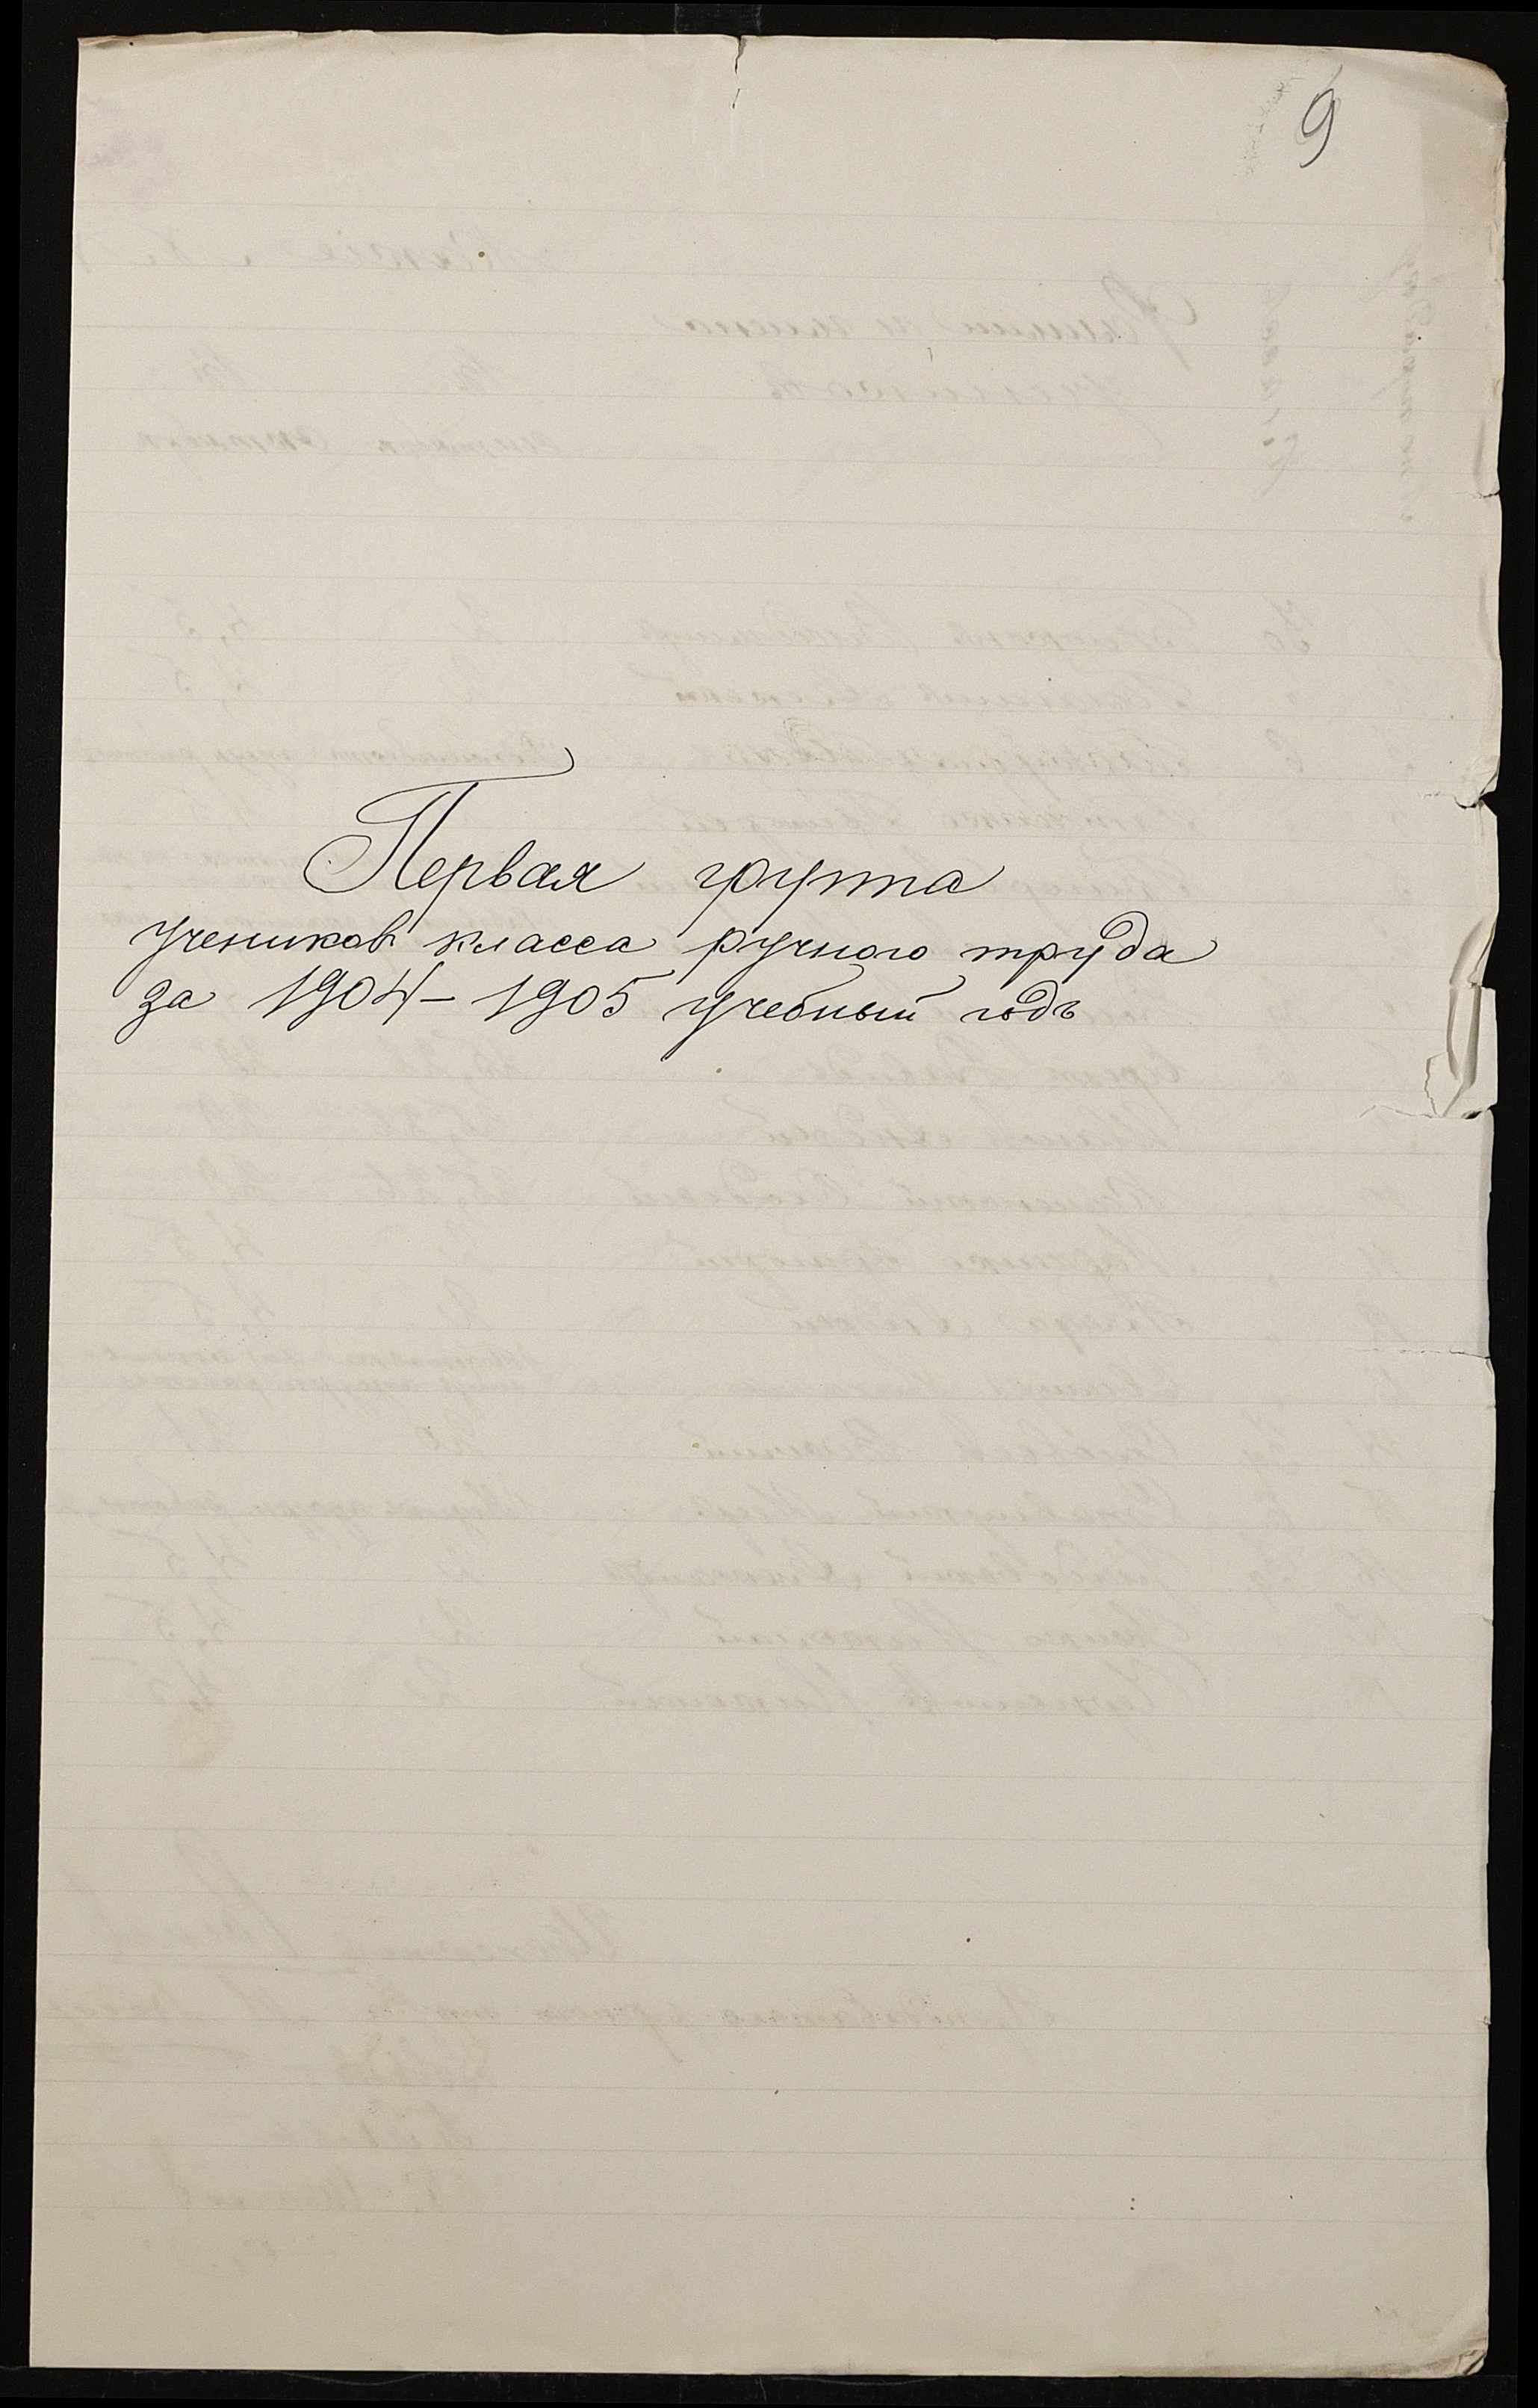 9
Первая группа
учеников класса ручного труда
за 1904-1905 учебный годъ